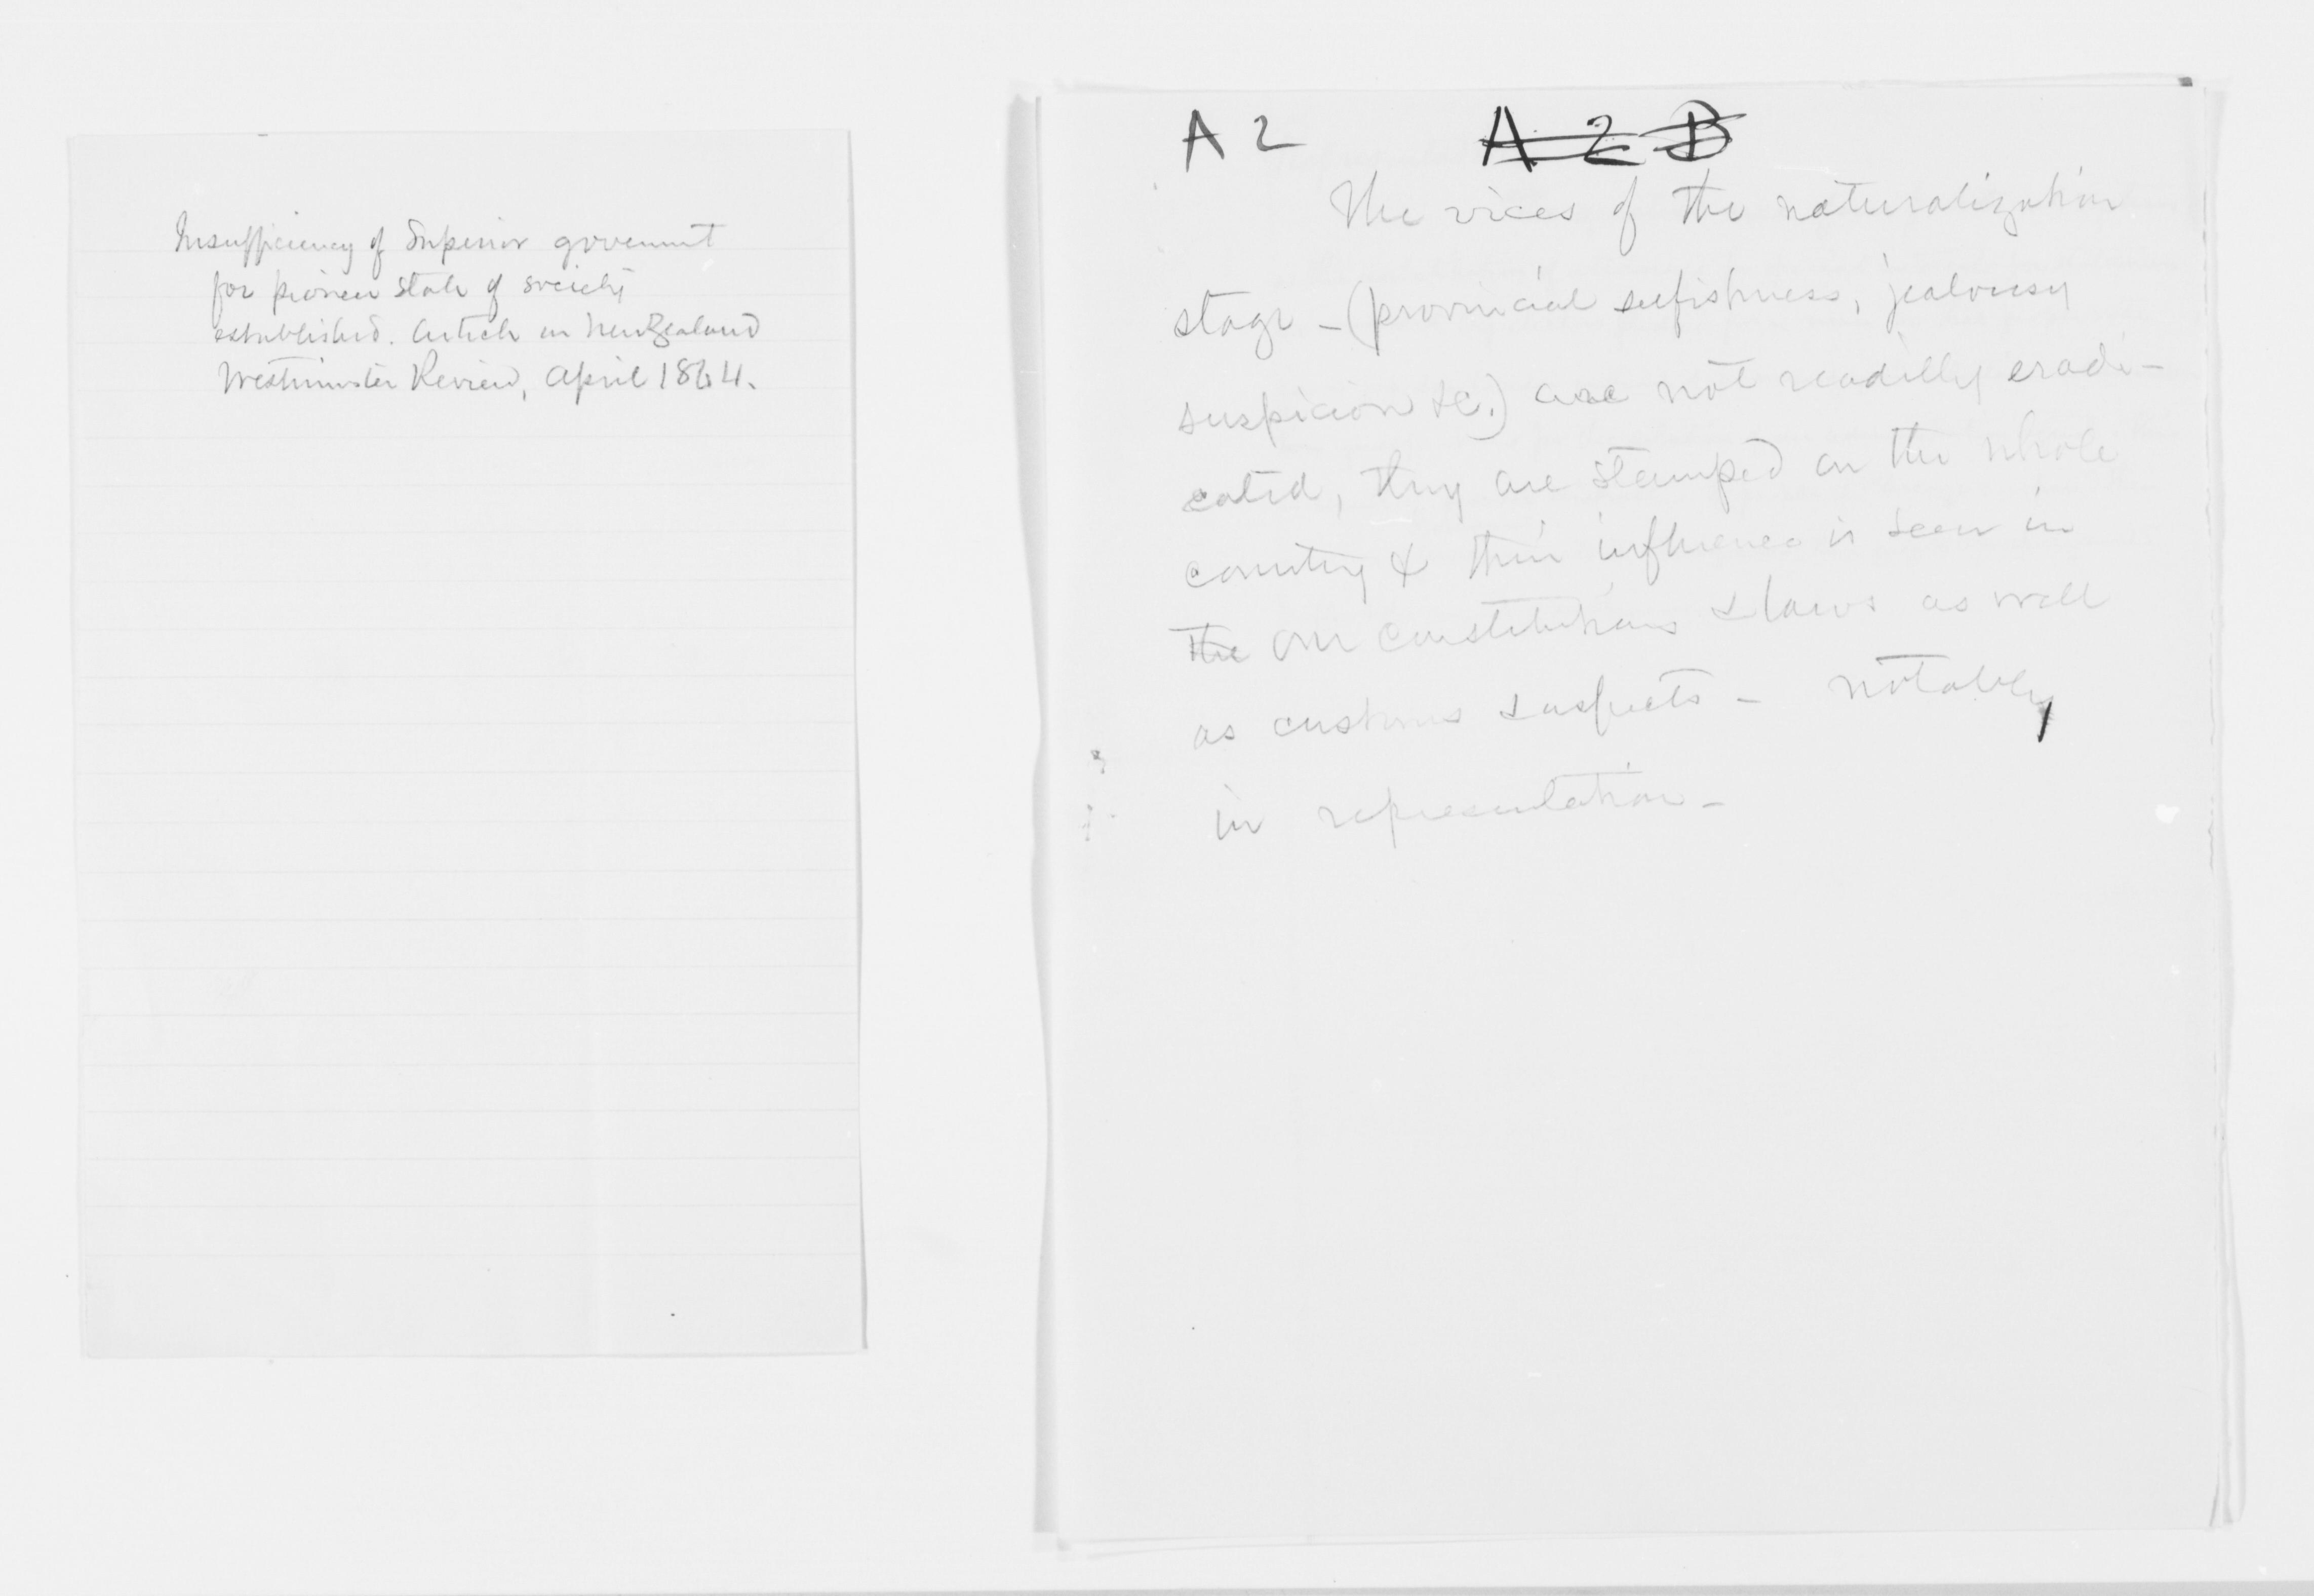 Insufficiency of Superior government
for pioneer state of society
established. Article on New Zealand
Westminster Review, April 1864.
A 2 A 2 B
The vices of the naturalization
stage - (provincial selfishness, jealousy
suspicion &c.) are not readilly eradi-
cated, they are stamped on the whole
country & their influence is seen in
the our constitutions & laws as well
as customs & aspects - notably
in representation -